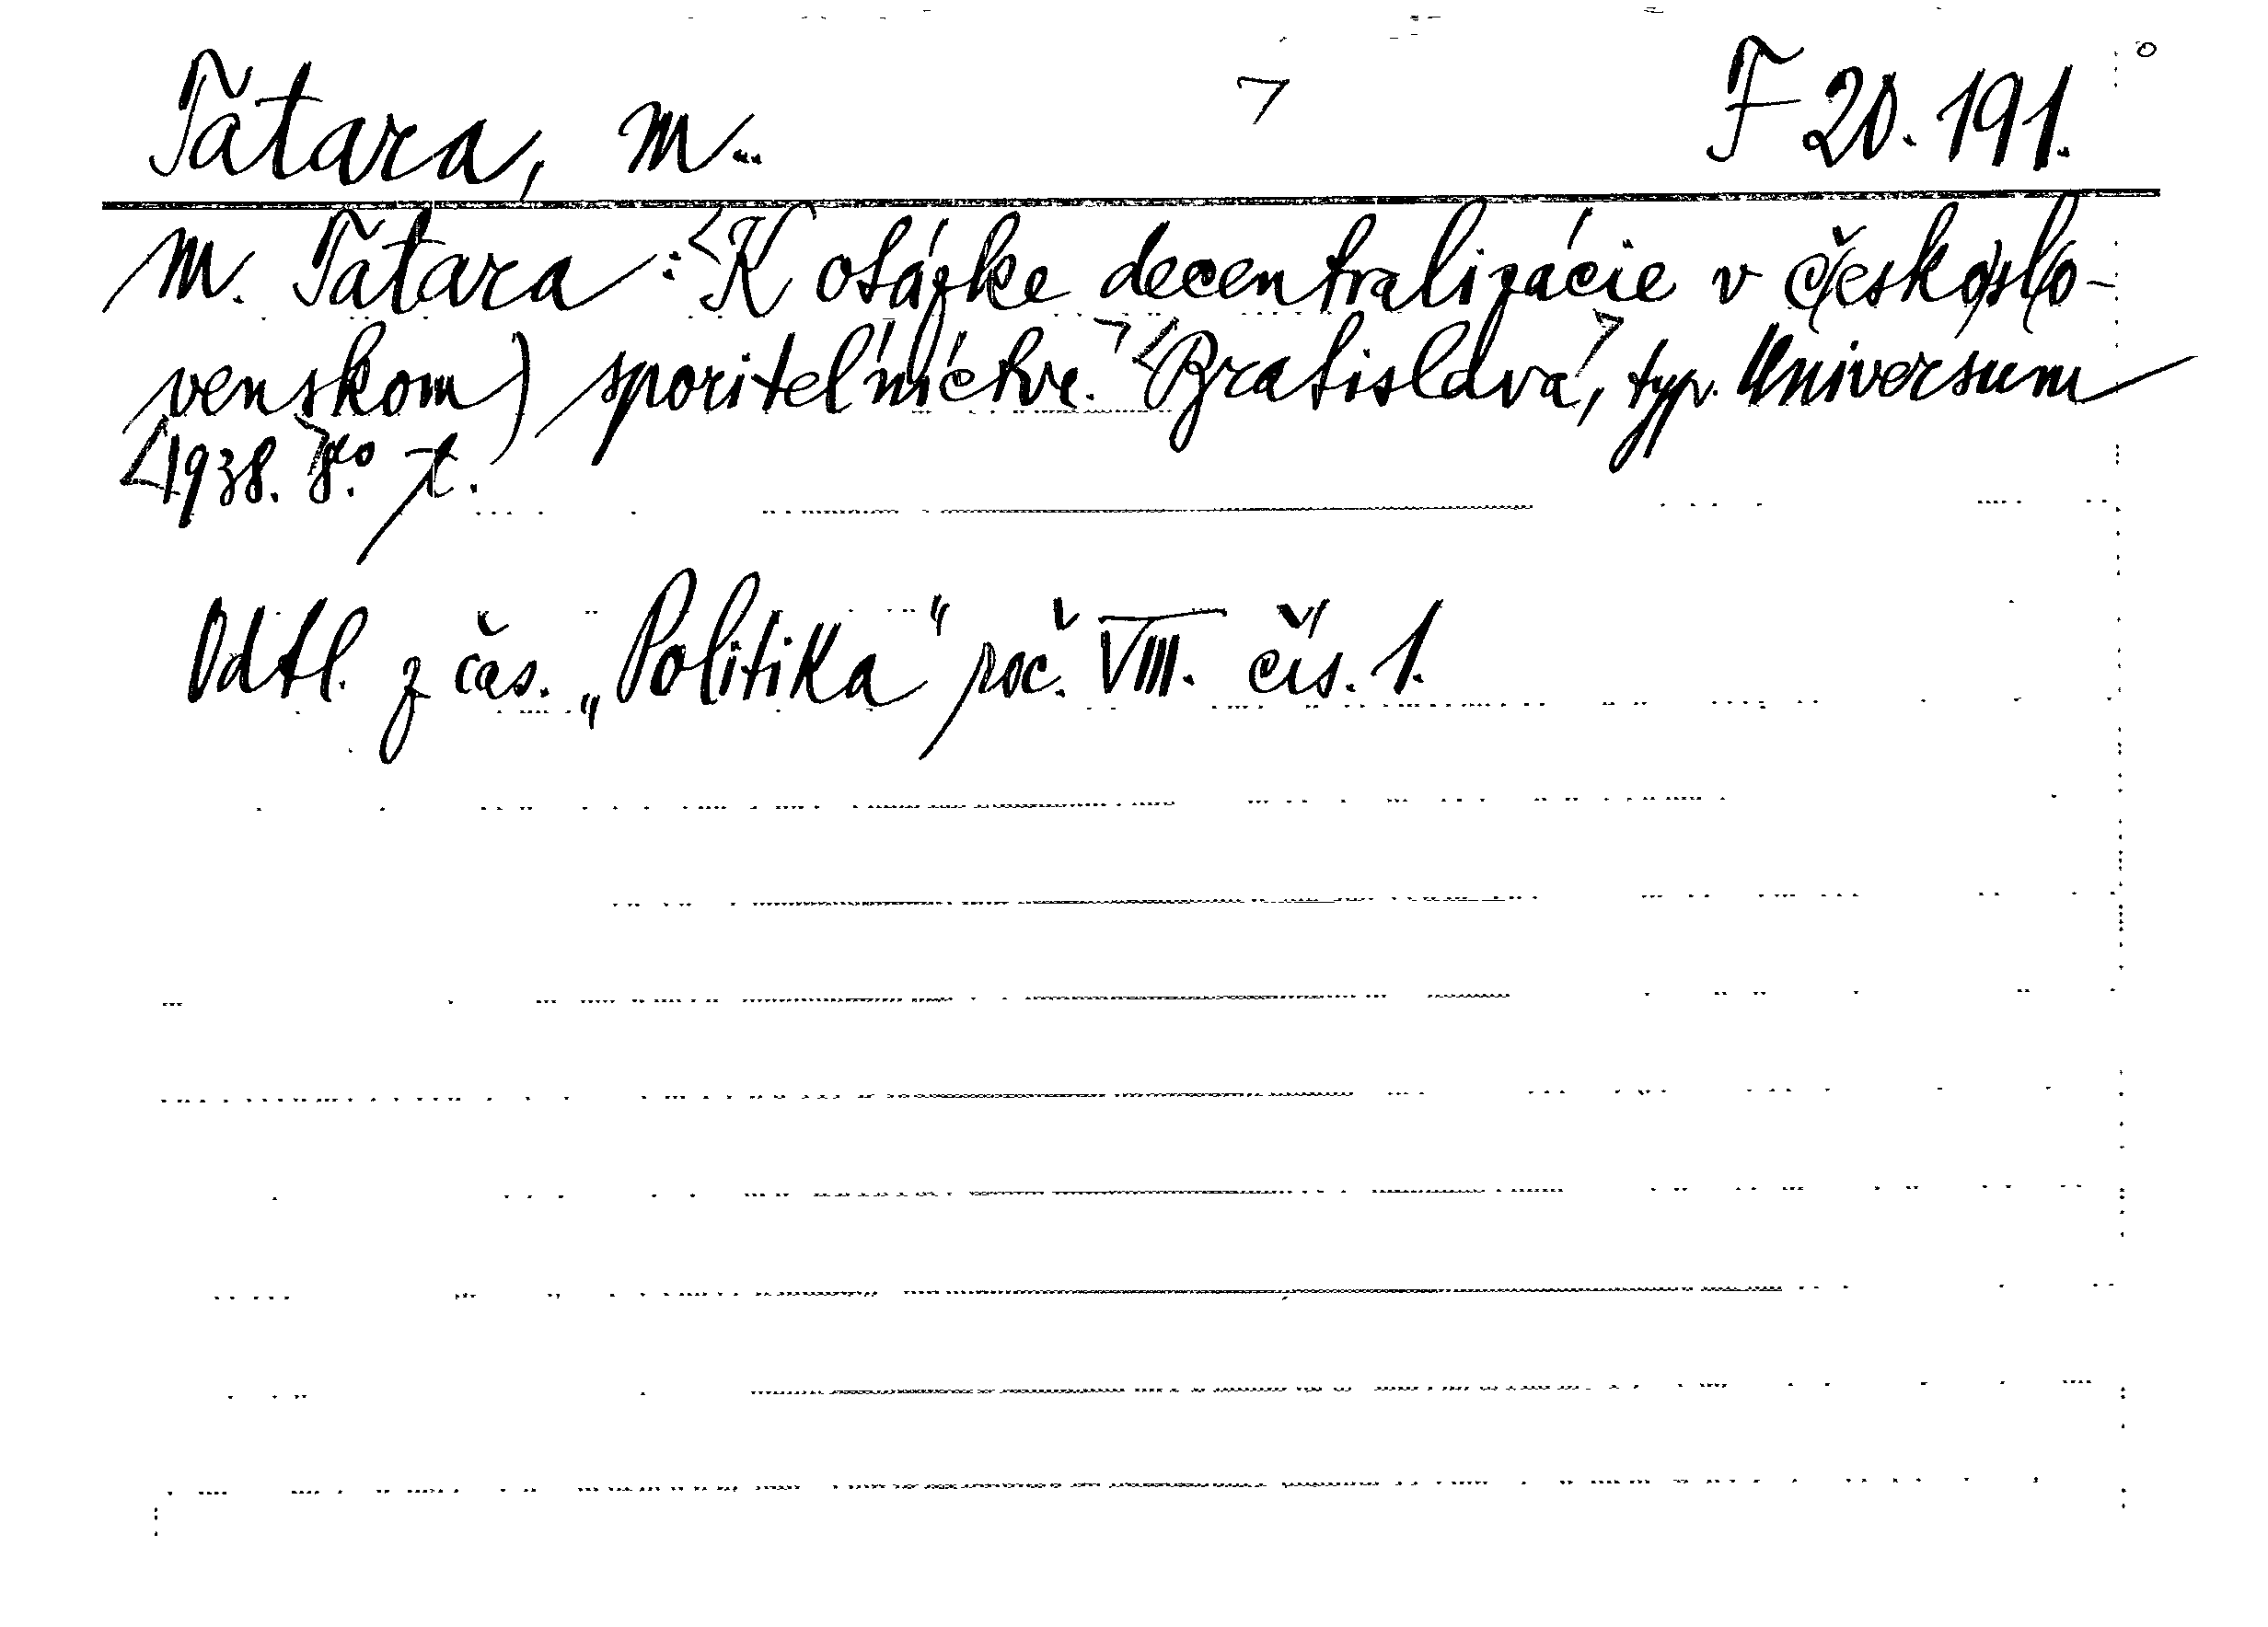 Tatara, M..
F 20.191.
M. Tatara: K otázke decentralizácie v českoslo-
venskom) sporiteľníctve. Bratislava, typ. Universum
1938. 8º. t.
Odtl. z čas. „Politika" roč. VIII. čís. 1.